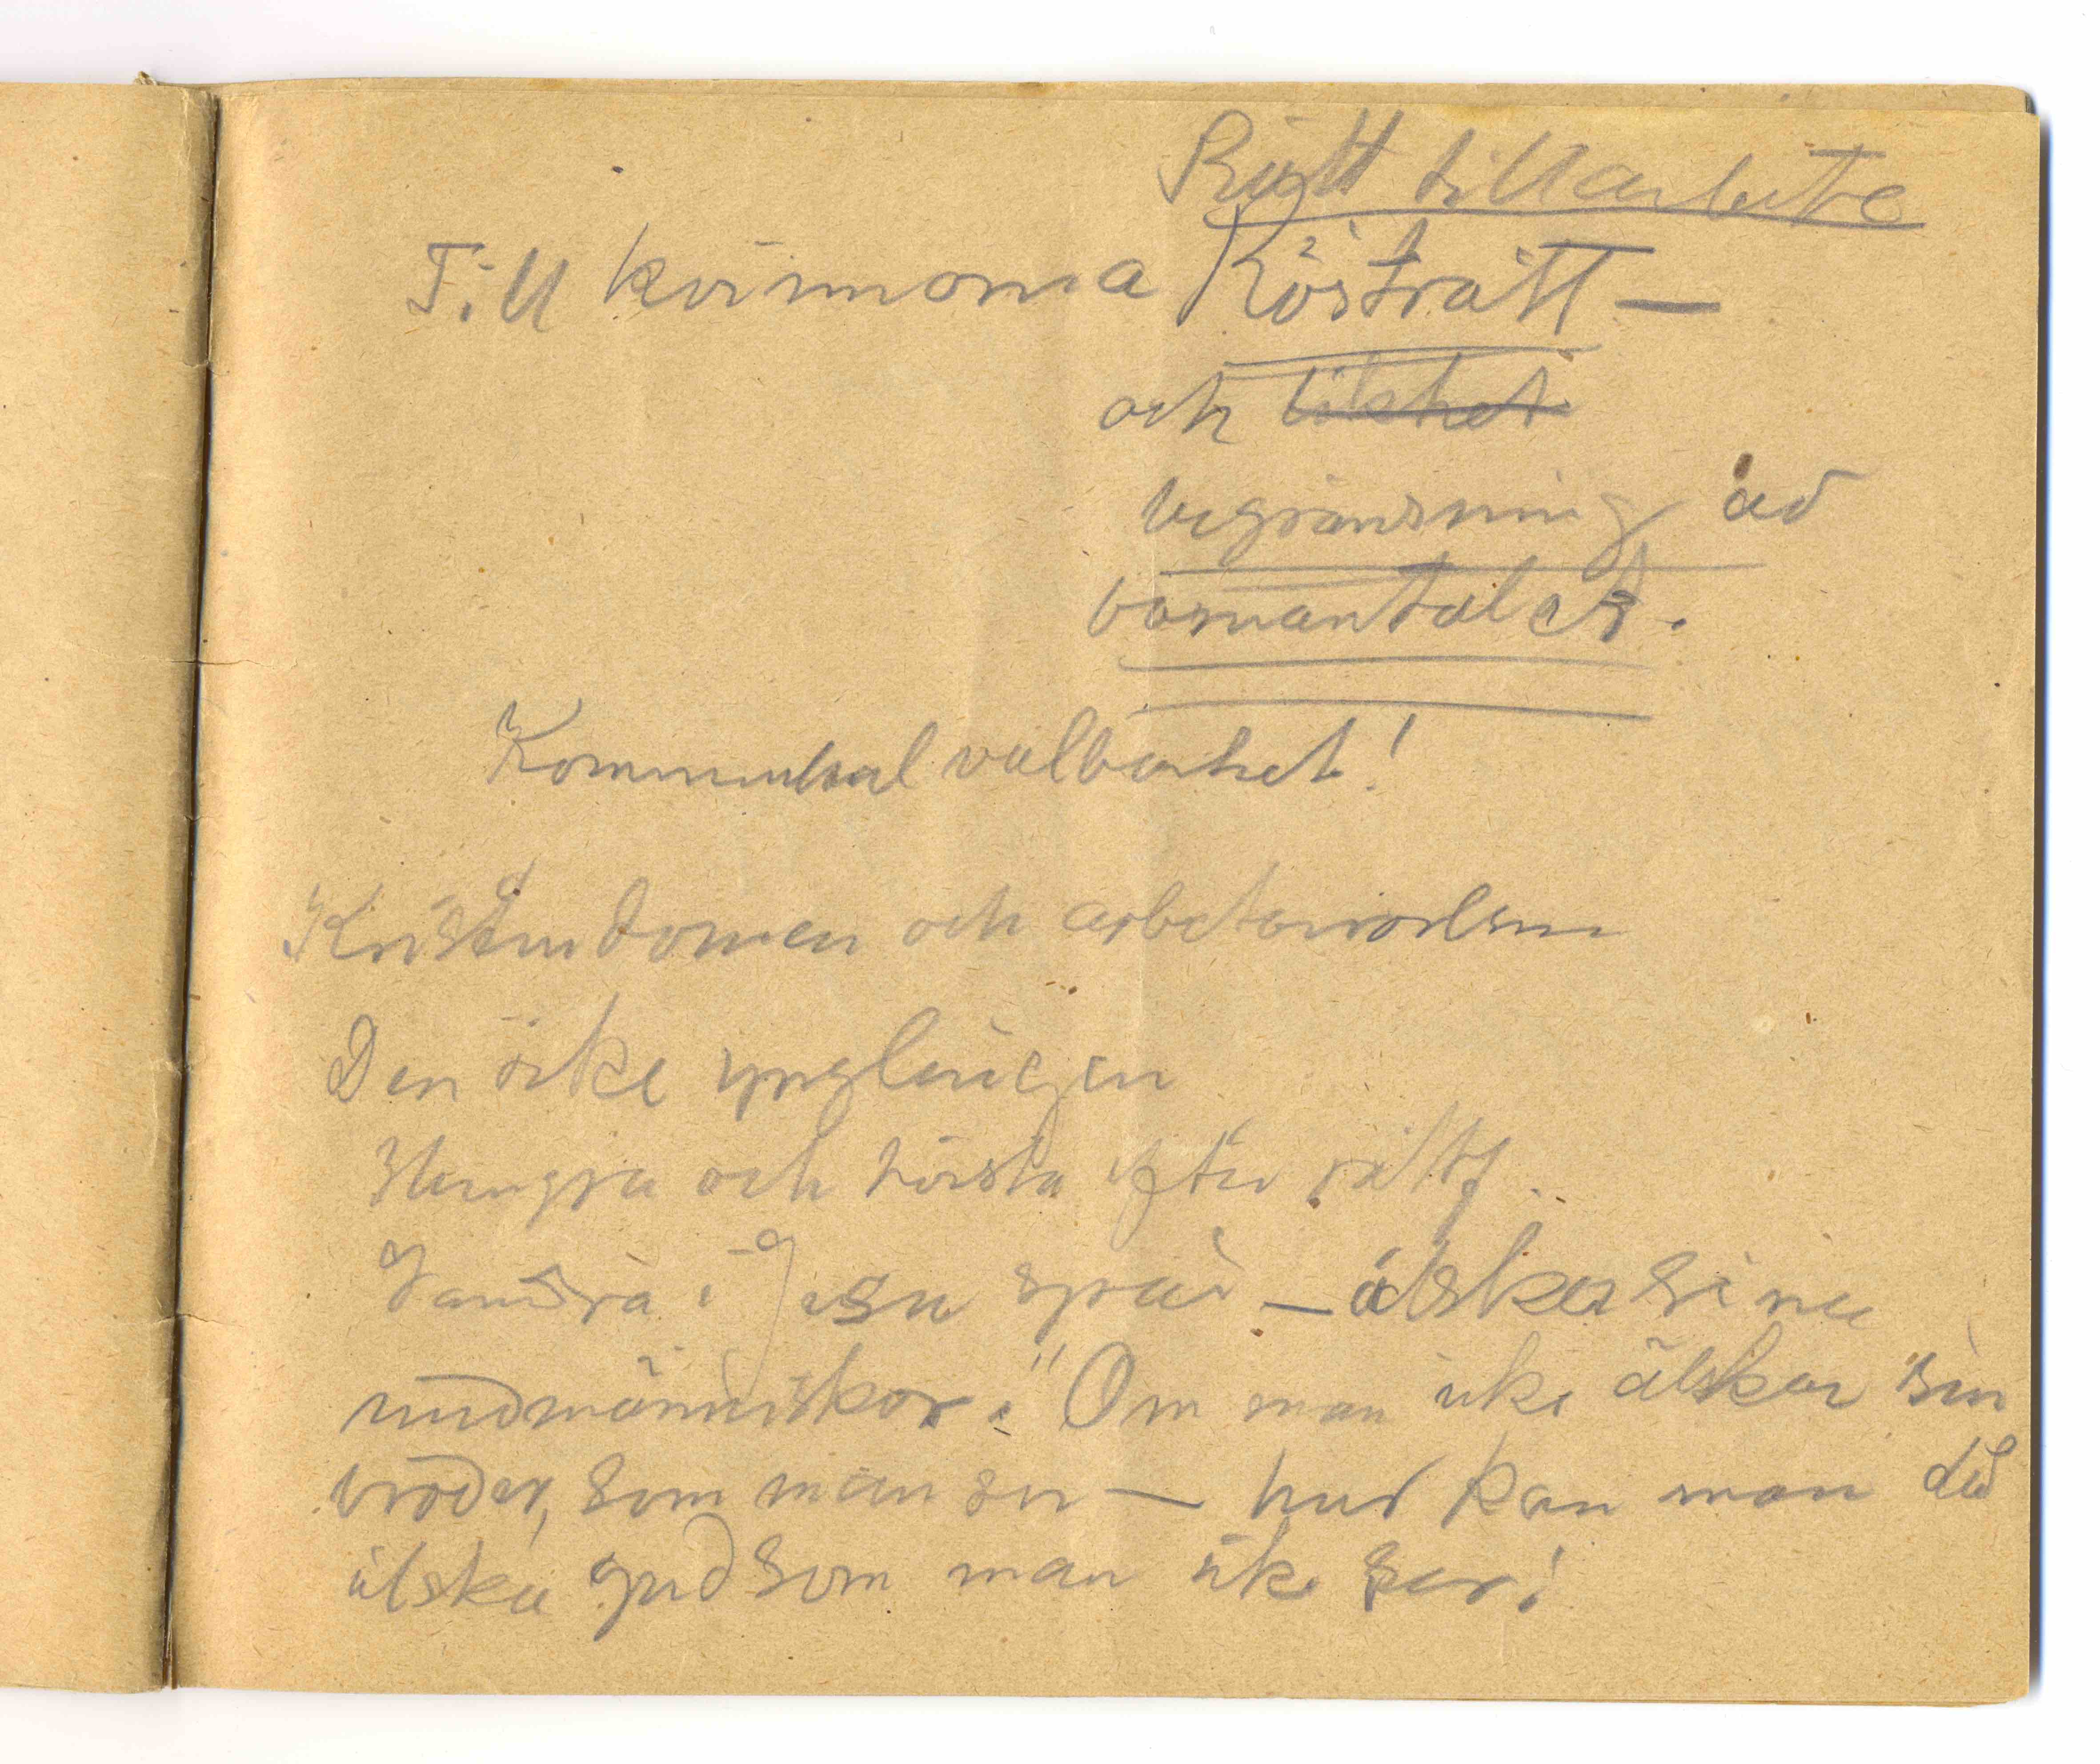 Rätt till arbete
Till kvinnorna Rösträtt —
och
begränsning av
barnantalet.
Kommunal valbarhet!
Kristendomen och arbetarrörelsen
Den rike ynglingen
Hungra och törsta efter rättf.
Vandra i Jesu spår — älska sina
medmänniskor. "Om man icke älskar sin
broder, som man ser — hur kan man då
älska gud som man icke ser!